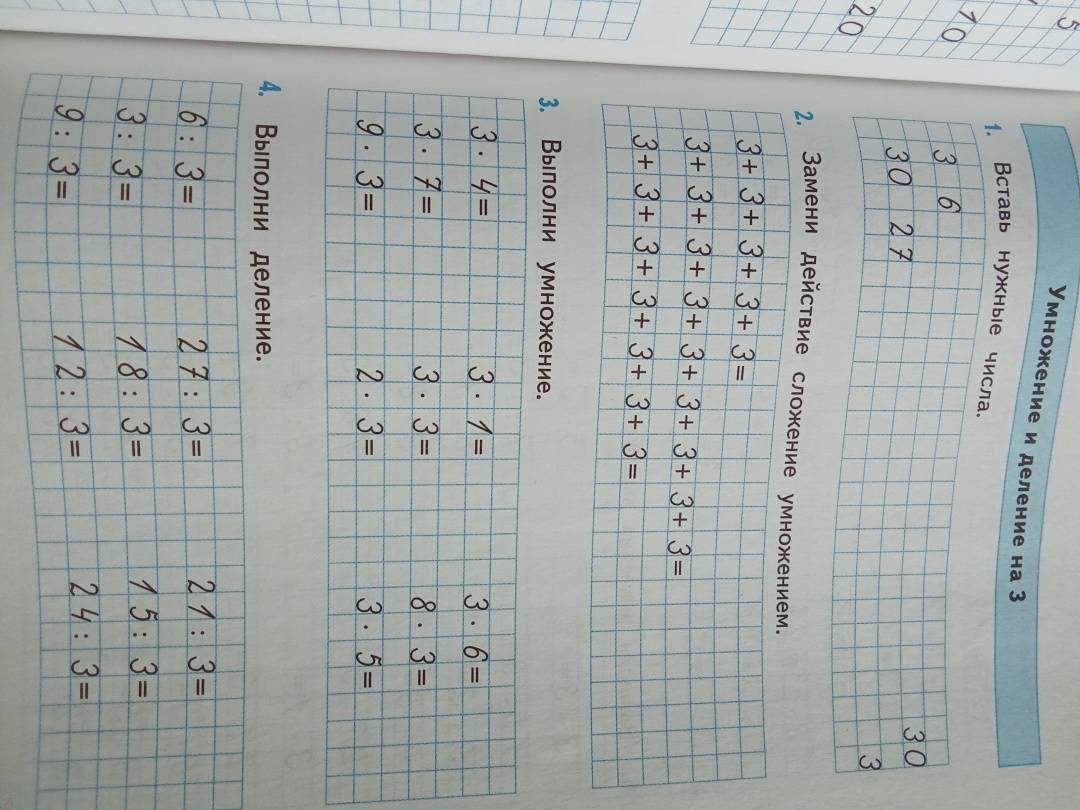 5
10
20
Умножение и деление на 3
1. Вставь нужные числа.
3 6 30
30 27 3
2. Замени действие сложение умножением.
3+ 3+ 3+ 3+ 3=
3+ 3+ 3+ 3+ 3+ 3+ 3+ 3+ 3=
3+ 3+ 3+ 3+ 3+ 3+ 3=
3. Выполни умножение.
3 · 4= 3 · 1= 3 · 6=
3 · 7= 3 · 3= 8 · 3=
9 · 3= 2 · 3= 3 · 5=
4. Выполни деление.
6 : 3= 27 : 3= 21 : 3=
3 : 3= 18 : 3= 15 : 3=
9 : 3= 12 : 3= 24 : 3=